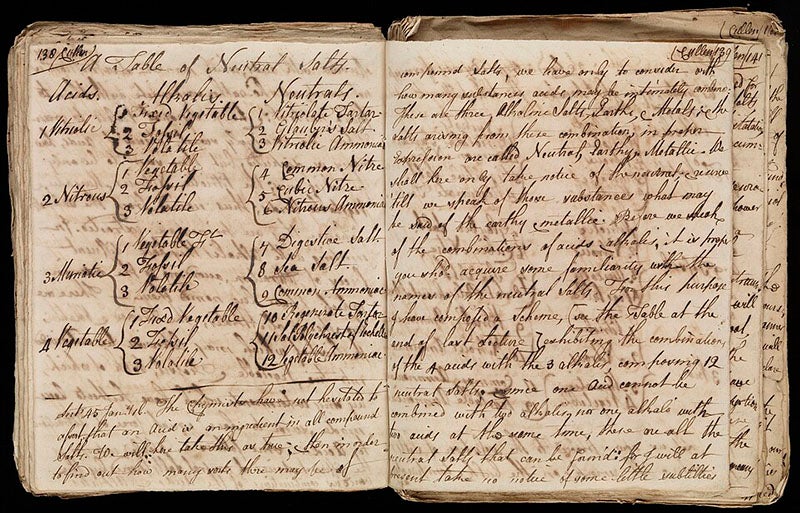 138 (Cullen)
A Table of Neutral Salts.
Acids. Alkalis. Neutrals.
1 Vitriolic
1 Fixed Vegetable
2 Fossil
3 Volatile
1 Vitriolate Tartar
2 Glaubers Salt
3 Vitriolic Ammoniac
2 Nitrous
1 Vegetable
2 Fossil
3 Volatile
4 Common Nitre
5 Cubic Nitre
6 Nitrous Ammoniac
3 Muriatic
1 Vegetable
2 Fossil
3 Volatile
7 Digestive Salt
8 Sea Salt
9 Common Ammoniac
4 Vegetable
1 Fixed Vegetable
2 Fossil
3 Volatile
10 Regenerate Tartar
11 Sal Polychrest of Rochelle
12 Vegetable Ammoniac
Lect. 45 The Chymists have not hesitated to
assert that an Acid is an ingredient in all compound
Salts. We will here take this as true, then in order
to find out how many sorts there may be of
(Cullen) 139
compound Salts, we have only to consider with
how many substances acids may be intimately combined.
These are three Alkaline Salts, Earths, & Metals; the
Salts arising from these combinations, in proper
expression are called Neutral, Earthy & Metallic. We
shall here only take notice of the neutral, & reserve
till we speak of those substances what may
be said of the earthy & metallic. Before we speak
of the combinations of acids & alkalis, it is proper
you shod. acquire some familiarity with the
names of the neutral Salts. For this purpose
I have composed a scheme, (see the Table at the
end of last Lecture) exhibiting the combinations
of the 4 acids with the 3 alkalis, composing 12
neutral salts, & since one Acid cannot be
combined with two alkalis, nor one alkali with
two acids at the same time, these are all the
neutral Salts that can be found: for I will at
present take no notice of some little subtilties
(Cullen)